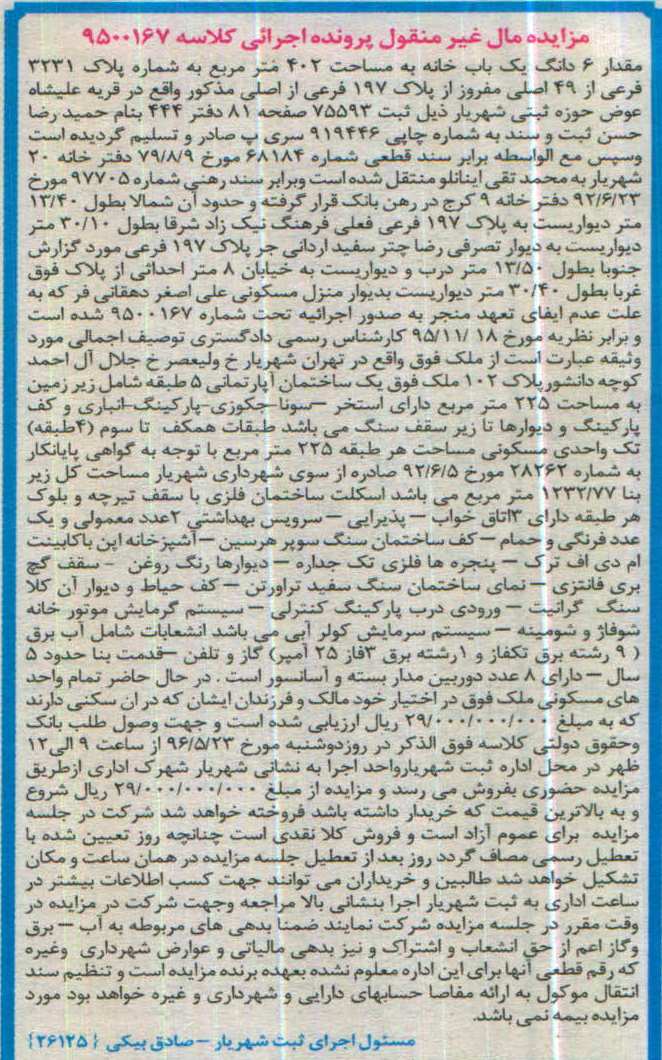 مزایده مال غیر منقول پرونده اجرائی کلاسه ۹۵۰۰۱۶۷
مقدار ۶ دانگ یک باب خانه به مساحت ۴۰۲ متر مربع به شماره پلاک ۳۲۳۱
فرعی از ۴۹ اصلی مفروز از پلاک ۱۹۷ فرعی از اصلی مذکور واقع در قریه علیشاه
عوض حوزه ثبتی شهریار ذیل ثبت ۷۵۵۹۳ صفحه ۸۱ دفتر ۴۴۴ بنام حمید رضا
حسن ثبت و سند به شماره چاپی ۹۱۹۴۴۶ سری پ صادر و تسلیم گردیده است
وسپس مع الواسطه برابر سند قطعی شماره ۶۸۱۸۴ مورخ ۷۹/۸/۹ دفتر خانه ۲۰
شهریار به محمد تقی اینانلو منتقل شده است وبرابر سند رهنی شماره ۹۷۷۰۵ مورخ
۹۲/۶/۲۳ دفتر خانه ۹ کرج در رهن بانک قرار گرفته و حدود آن شمالا بطول ۱۳/۴۰
متر دیواریست به پلاک ۱۹۷ فرعی فعلی فرهنگ نیک زاد شرقا بطول ۳۰/۱۰ متر
دیواریست به دیوار تصرفی رضا چتر سفید اردانی جر پلاک ۱۹۷ فرعی مورد گزارش
جنوبا بطول ۱۳/۵۰ متر درب و دیواریست به خیابان ۸ متر احداثی از پلاک فوق
غربا بطول ۳۰/۴۰ متر دیواریست بدیوار منزل مسکونی علی اصغر دهقانی فر که به
علت عدم ایفای تعهد منجر به صدور اجرائیه تحت شماره ۹۵۰۰۱۶۷ شده است
و برابر نظریه مورخ ۱۸ /۹۵/۱۱ کارشناس رسمی دادگستری توصیف اجمالی مورد
وثیقه عبارت است از ملک فوق واقع در تهران شهریار خ ولیعصر خ جلال آل احمد
کوچه دانشور پلاک ۱۰۲ ملک فوق یک ساختمان آپارتمانی ۵ طبقه شامل زیر زمین
به مساحت ۲۲۵ متر مربع دارای استخر –سونا-جکوزی-پارکینگ-انباری و کف
پارکینگ و دیوارها تا زیر سقف سنگ می باشد طبقات همکف تا سوم (۴طبقه)
تک واحدی مسکونی مساحت هر طبقه ۲۲۵ متر مربع با توجه به گواهی پایانکار
به شماره ۲۸۲۶۲ مورخ ۹۲/۶/۵ صادره از سوی شهرداری شهریار مساحت کل زیر
بنا ۱۲۳۲/۷۷ متر مربع می باشد اسکلت ساختمان فلزی با سقف تیرچه و بلوک
هر طبقه دارای ۳اتاق خواب – پذیرایی – سرویس بهداشتی ۲عدد معمولی و یک
عدد فرنگی و حمام – کف ساختمان سنگ سوپر هرسین – آشپزخانه اپن باکابینت
ام دی اف ترک – پنجره ها فلزی تک جداره – دیوارها رنگ روغن - سقف گچ
بری فانتزی – نمای ساختمان سنگ سفید تراورتن – کف حیاط و دیوار آن کلا
سنگ گرانیت – ورودی درب پارکینگ کنترلی – سیستم گرمایش موتور خانه
شوفاژ و شومینه – سیستم سرمایش کولر آبی می باشد انشعابات شامل آب برق
( ۹ رشته برق تکفاز و ۱رشته برق ۳فاز ۲۵ آمپر) گاز و تلفن –قدمت بنا حدود ۵
سال – دارای ۸ عدد دوربین مدار بسته و آسانسور است . در حال حاضر تمام واحد
های مسکونی ملک فوق در اختیار خود مالک و فرزندان ایشان که در ان سکنی دارند
که به مبلغ ۲۹/۰۰۰/۰۰۰/۰۰۰ ریال ارزیابی شده است و جهت وصول طلب بانک
وحقوق دولتی کلاسه فوق الذکر در روزدوشنبه مورخ ۹۶/۵/۲۳ از ساعت ۹ الی۱۲
ظهر در محل اداره ثبت شهریارواحد اجرا به نشانی شهریار شهرک اداری ازطریق
مزایده حضوری بفروش می رسد و مزایده از مبلغ ۲۹/۰۰۰/۰۰۰/۰۰۰ ریال شروع
و به بالاترین قیمت که خریدار داشته باشد فروخته خواهد شد شرکت در جلسه
مزایده برای عموم آزاد است و فروش کلا نقدی است چنانچه روز تعیین شده با
تعطیل رسمی مصاف گردد روز بعد از تعطیل جلسه مزایده در همان ساعت و مکان
تشکیل خواهد شد طالبین و خریداران می توانند جهت کسب اطلاعات بیشتر در
ساعت اداری به ثبت شهریار اجرا بنشانی بالا مراجعه وجهت شرکت در مزایده در
وقت مقرر در جلسه مزایده شرکت نمایند ضمنا بدهی های مربوطه به آب – برق
وگاز اعم از حق انشعاب و اشتراک و نیز بدهی مالیاتی و عوارض شهرداری وغیره
که رقم قطعی آنها برای این اداره معلوم نشده بعهده برنده مزایده است و تنظیم سند
انتقال موکول به ارائه مفاصا حسابهای دارایی و شهرداری و غیره خواهد بود مورد
مزایده بیمه نمی باشد.
مسئول اجرای ثبت شهریار –صادق بیکی {۲۶۱۲۵}